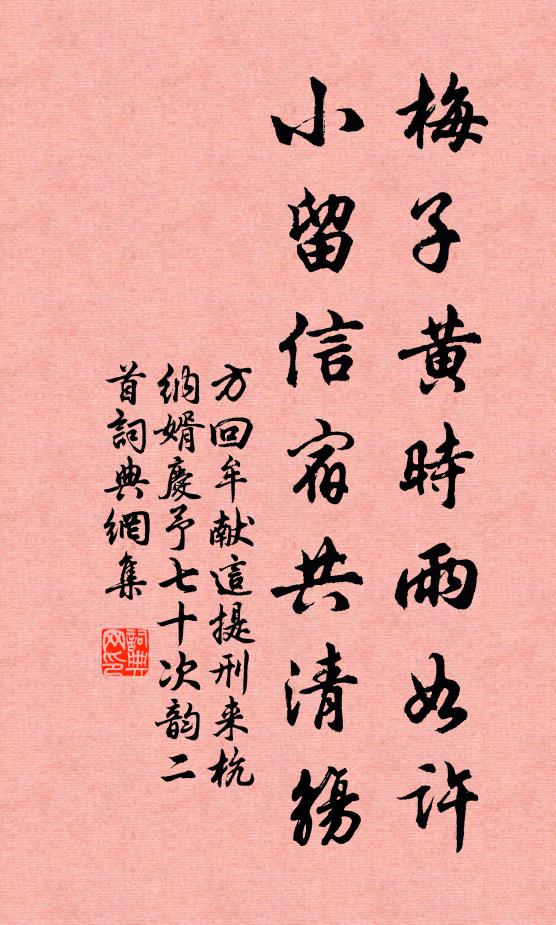 梅子黄時雨如許
小留信宿共清觴
方回牟献這提刑来杭
納婿慶予七十次韵二
首詞典網集
詞典网印